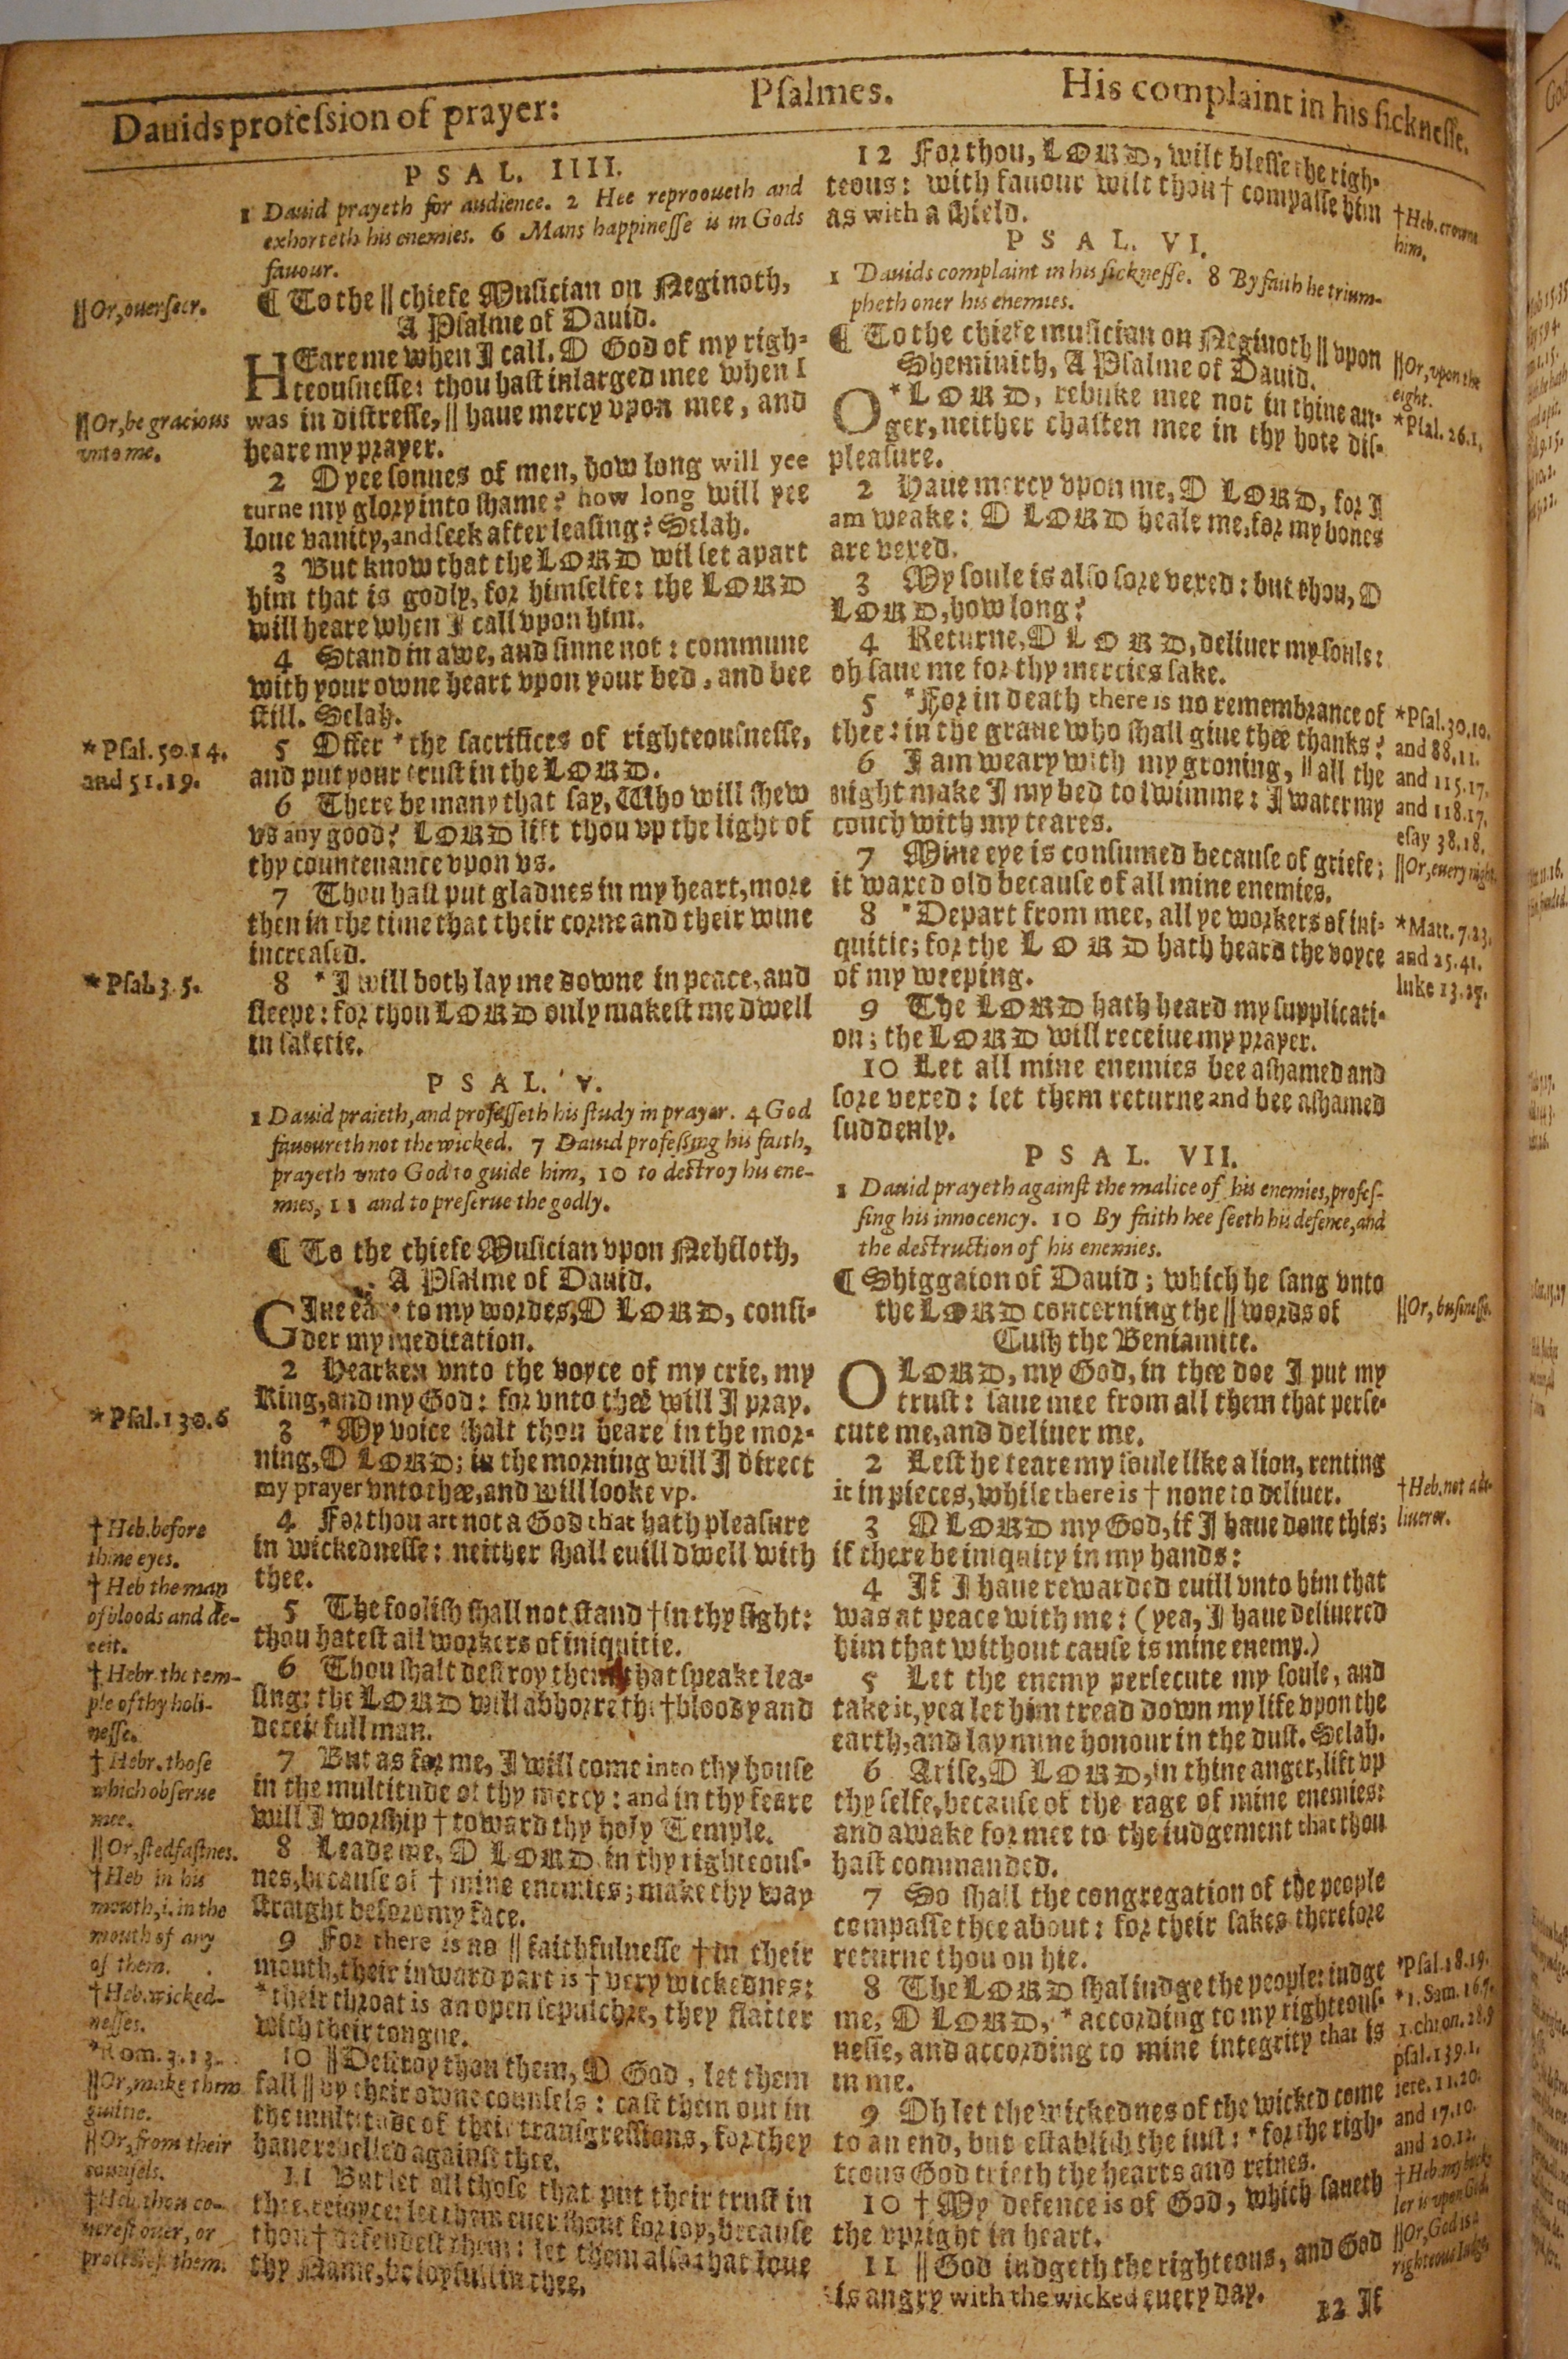 Dauids profession of prayer:
Psalmes.
His complaint in his sicknesse.
PSAL. IIII.
1 Dauid prayeth for audience. 2 Hee reprooueth and
exhorteth his enemies. 6 Mans happinesse is in Gods
fauour.
¶ To the || chiefe Musician on Neginoth,
A Psalme of Dauid.
HEare me when I call, O God of my righ-
teousnesse: thou hast inlarged mee when I
was in distresse, || haue mercy vpon mee, and
heare my prayer.
2 O yee sonnes of men, how long will yee
turne my glory into shame? how long will yee
loue vanity, and seek after leasing? Selah.
3 But know that the LORD wil set apart
him that is godly, for himselfe: the LORD
will heare when I call vpon him.
4 Stand in awe, and sinne not: commune
with your owne heart vpon your bed, and bee
still. Selah.
5 Offer * the sacrifices of righteousnesse,
and put your trust in the LORD.
6 There be many that say, Who will shew
vs any good? LORD lift thou vp the light of
thy countenance vpon vs.
7 Thou hast put gladnes in my heart, more
then in the time that their corne and their wine
increased.
8 * I will both lay me downe in peace, and
sleepe: for thou LORD only makest me dwell
in safetie.
||Or, ouerseer.
||Or, be gracious
vnto me.
*Psal. 50.14.
and 51.19.
*Psal. 3.5.
PSAL. V.
1 Dauid praieth, and professeth his study in prayer. 4 God
fauoureth not the wicked. 7 Dauid professing his faith,
prayeth vnto God to guide him, 10 to destroy his ene-
mies, 11 and to preserue the godly.
¶ To the chiefe Musician vpon Nehiloth,
A Psalme of Dauid.
GIue eare to my wordes, O LORD, consi-
der my meditation.
2 Hearken vnto the voyce of my crie, my
King, and my God: for vnto thee will I pray.
3 * My voice shalt thou heare in the mor-
ning, O LORD; in the morning will I direct
my prayer vnto thee, and will looke vp.
4 For thou art not a God that hath pleasure
in wickednesse: neither shall euill dwell with
thee.
5 The foolish shall not stand † in thy sight:
thou hatest all workers of iniquitie.
6 Thou shalt destroy them that speake lea-
sing: the LORD will abhorre the † bloody and
deceitfull man.
7 But as for me, I will come into thy house
in the multitude of thy mercy: and in thy feare
will I worship † toward thy holy Temple.
8 Leade me, O LORD in thy righteous-
nes, because of † mine enemies; make thy way
straight before my face.
9 For there is no || faithfulnesse † in their
mouth, their inward part is † very wickednes:
* their throat is an open sepulchre, they flatter
with their tongue.
10 || Destroy thou them, O God, let them
fall || by their owne counsels: cast them out in
the multitude of their transgressions, for they
haue rebelled against thee.
11 But let all those that put their trust in
thee, reioyce: let them euer shout for ioy, because
thou † defendest them: let them also that loue
thy Name, be ioyfull in thee.
*Psal. 130.6
†Heb. before
thine eyes.
†Heb the man
of bloods and de-
ceit.
†Hebr. the tem-
ple of thy holi-
nesse.
†Hebr. those
which obserue
mee.
||Or, stedfastnes.
†Heb in his
mouth, i. in the
mouth of any
of them.
†Heb. wicked-
nesses.
*Rom. 3.13.
||Or, make them
guiltie.
||Or, from their
counsels.
†Heb. thou co-
uerest ouer, or
protectest them.
12 For thou, LORD, wilt blesse the righ-
teous: with fauour wilt thou † compasse him
as with a shield.
PSAL. VI.
1 Dauids complaint in his sicknesse. 8 By faith he trium-
pheth ouer his enemies.
¶ To the chiefe musician on Neginoth || vpon
Sheminith, A Psalme of Dauid.
O * LORD, rebuke mee not in thine an-
ger, neither chasten mee in thy hote dis-
pleasure.
2 Haue mercy vpon me, O LORD, for I
am weake: O LORD heale me, for my bones
are vexed.
3 My soule is also sore vexed: but thou, O
LORD, how long?
4 Returne, O LORD, deliuer my soule:
oh saue me for thy mercies sake.
5 * For in death there is no remembrance of
thee: in the graue who shall giue thee thanks?
6 I am weary with my groning, || all the
night make I my bed to swimme: I water my
couch with my teares.
7 Mine eye is consumed because of griefe;
it waxed old because of all mine enemies.
8 * Depart from mee, all ye workers of ini-
quitie; for the LORD hath heard the voyce
of my weeping.
9 The LORD hath heard my supplicati-
on; the LORD will receiue my prayer.
10 Let all mine enemies bee ashamed and
sore vexed: let them returne and bee ashamed
suddenly.
†Heb. crowne
him.
||Or, vpon the
eight.
*Psal. 26.1.
*Psal. 30.10.
and 88.11.
and 115.17.
and 118.17.
esay 38.18.
||Or, euery night.
*Matt. 7.23.
and 25.41.
luke 13.27.
PSAL. VII.
1 Dauid prayeth against the malice of his enemies, profes-
sing his innocency. 10 By faith hee seeth his defence, and
the destruction of his enemies.
¶ Shiggaion of Dauid; which he sang vnto
the LORD concerning the || words of
Cush the Beniamite.
O LORD, my God, in thee doe I put my
trust: saue mee from all them that perse-
cute me, and deliuer me.
2 Lest he teare my soule like a lion, renting
it in pieces, while there is † none to deliuer.
3 O LORD my God, if I haue done this;
if there be iniquity in my hands:
4 If I haue rewarded euill vnto him that
was at peace with me: (yea, I haue deliuered
him that without cause is mine enemy.)
5 Let the enemy persecute my soule, and
take it, yea let him tread down my life vpon the
earth, and lay mine honour in the dust. Selah.
6 Arise, O LORD, in thine anger, lift vp
thy selfe, because of the rage of mine enemies:
and awake for mee to the iudgement that thou
hast commanded.
7 So shall the congregation of the people
compasse thee about: for their sakes therefore
returne thou on hie.
8 The LORD shal iudge the people: iudge
me, O LORD, * according to my righteous-
nesse, and according to mine integrity that is
in me.
9 Oh let the wickednes of the wicked come
to an end, but establish the iust: * for the righ-
teous God trieth the hearts and reines.
10 † My defence is of God, which saueth
the vpright in heart.
11 || God iudgeth the righteous, and God
is angry with the wicked euery day.
12 If
||Or, businesse.
†Heb. not a de-
liuerer.
*Psal. 18.19.
*1. Sam. 16.7.
1. chron. 28.9
psal. 139.1.
iere. 11.20.
and 17.10.
and 20.12.
†Heb. my buck-
ler is vpon God.
||Or, God is a
righteous Iudge.